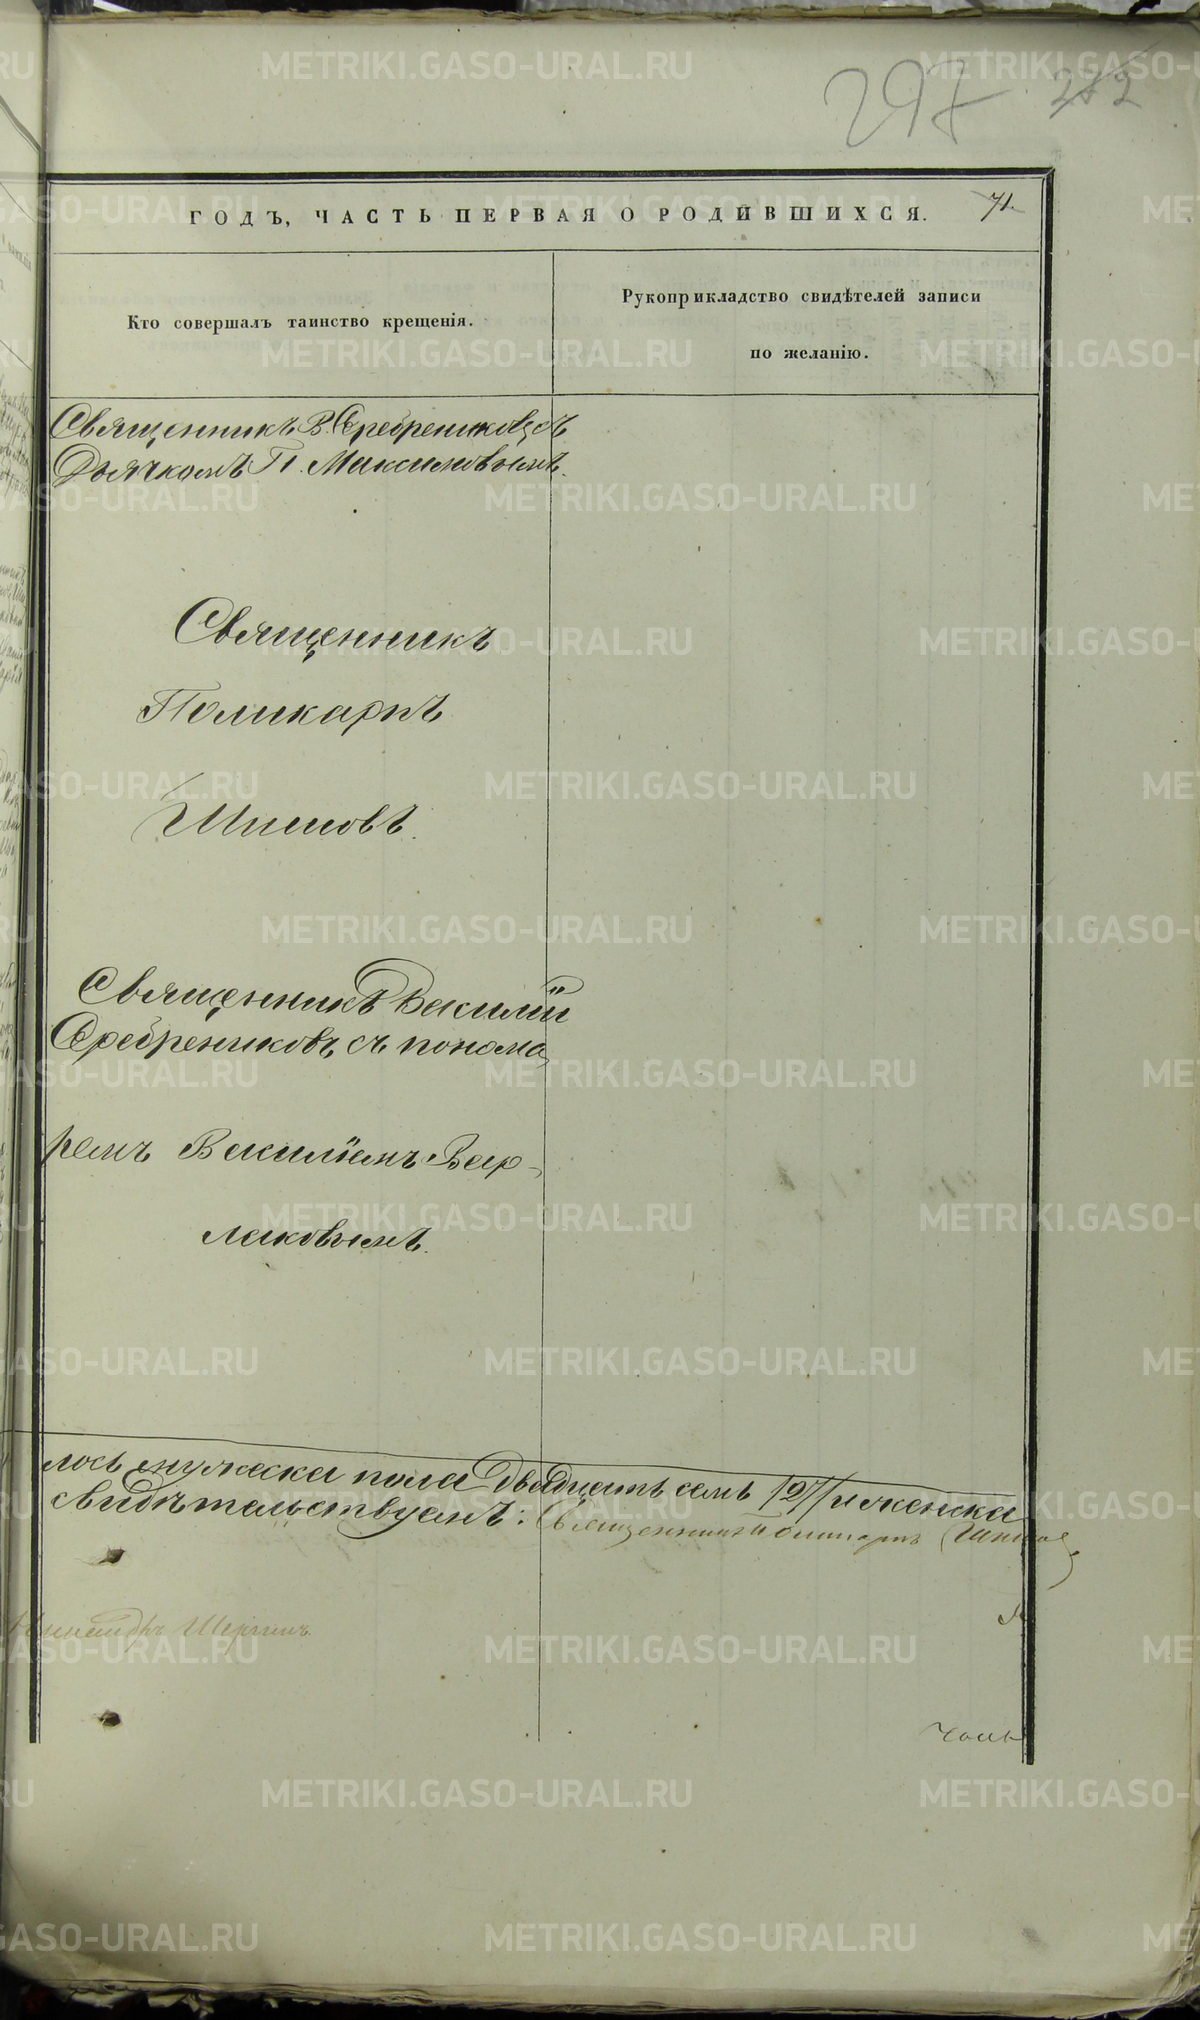 297 272
ГОДЪ, ЧАСТЬ ПЕРВАЯ О РОДИВШИХСЯ. 71.
Кто совершалъ таинство крещенія.
Рукоприкладство свидѣтелей записи
по желанію.
Священникъ В. Серебрениковъ съ
Дьячкомъ П. Максимовымъ.
Священникъ
Поликарпъ
Шишовъ.
Священникъ Василій
Серебрениковъ съ понома
ремъ Василіемъ Вар-
лаковымъ.
лось мужеска пола двадцать семь /27/ и женска
свидѣтельствуемъ: Священникъ Поликарпъ
Шергинъ
METRIKI.GASO-URAL.RU